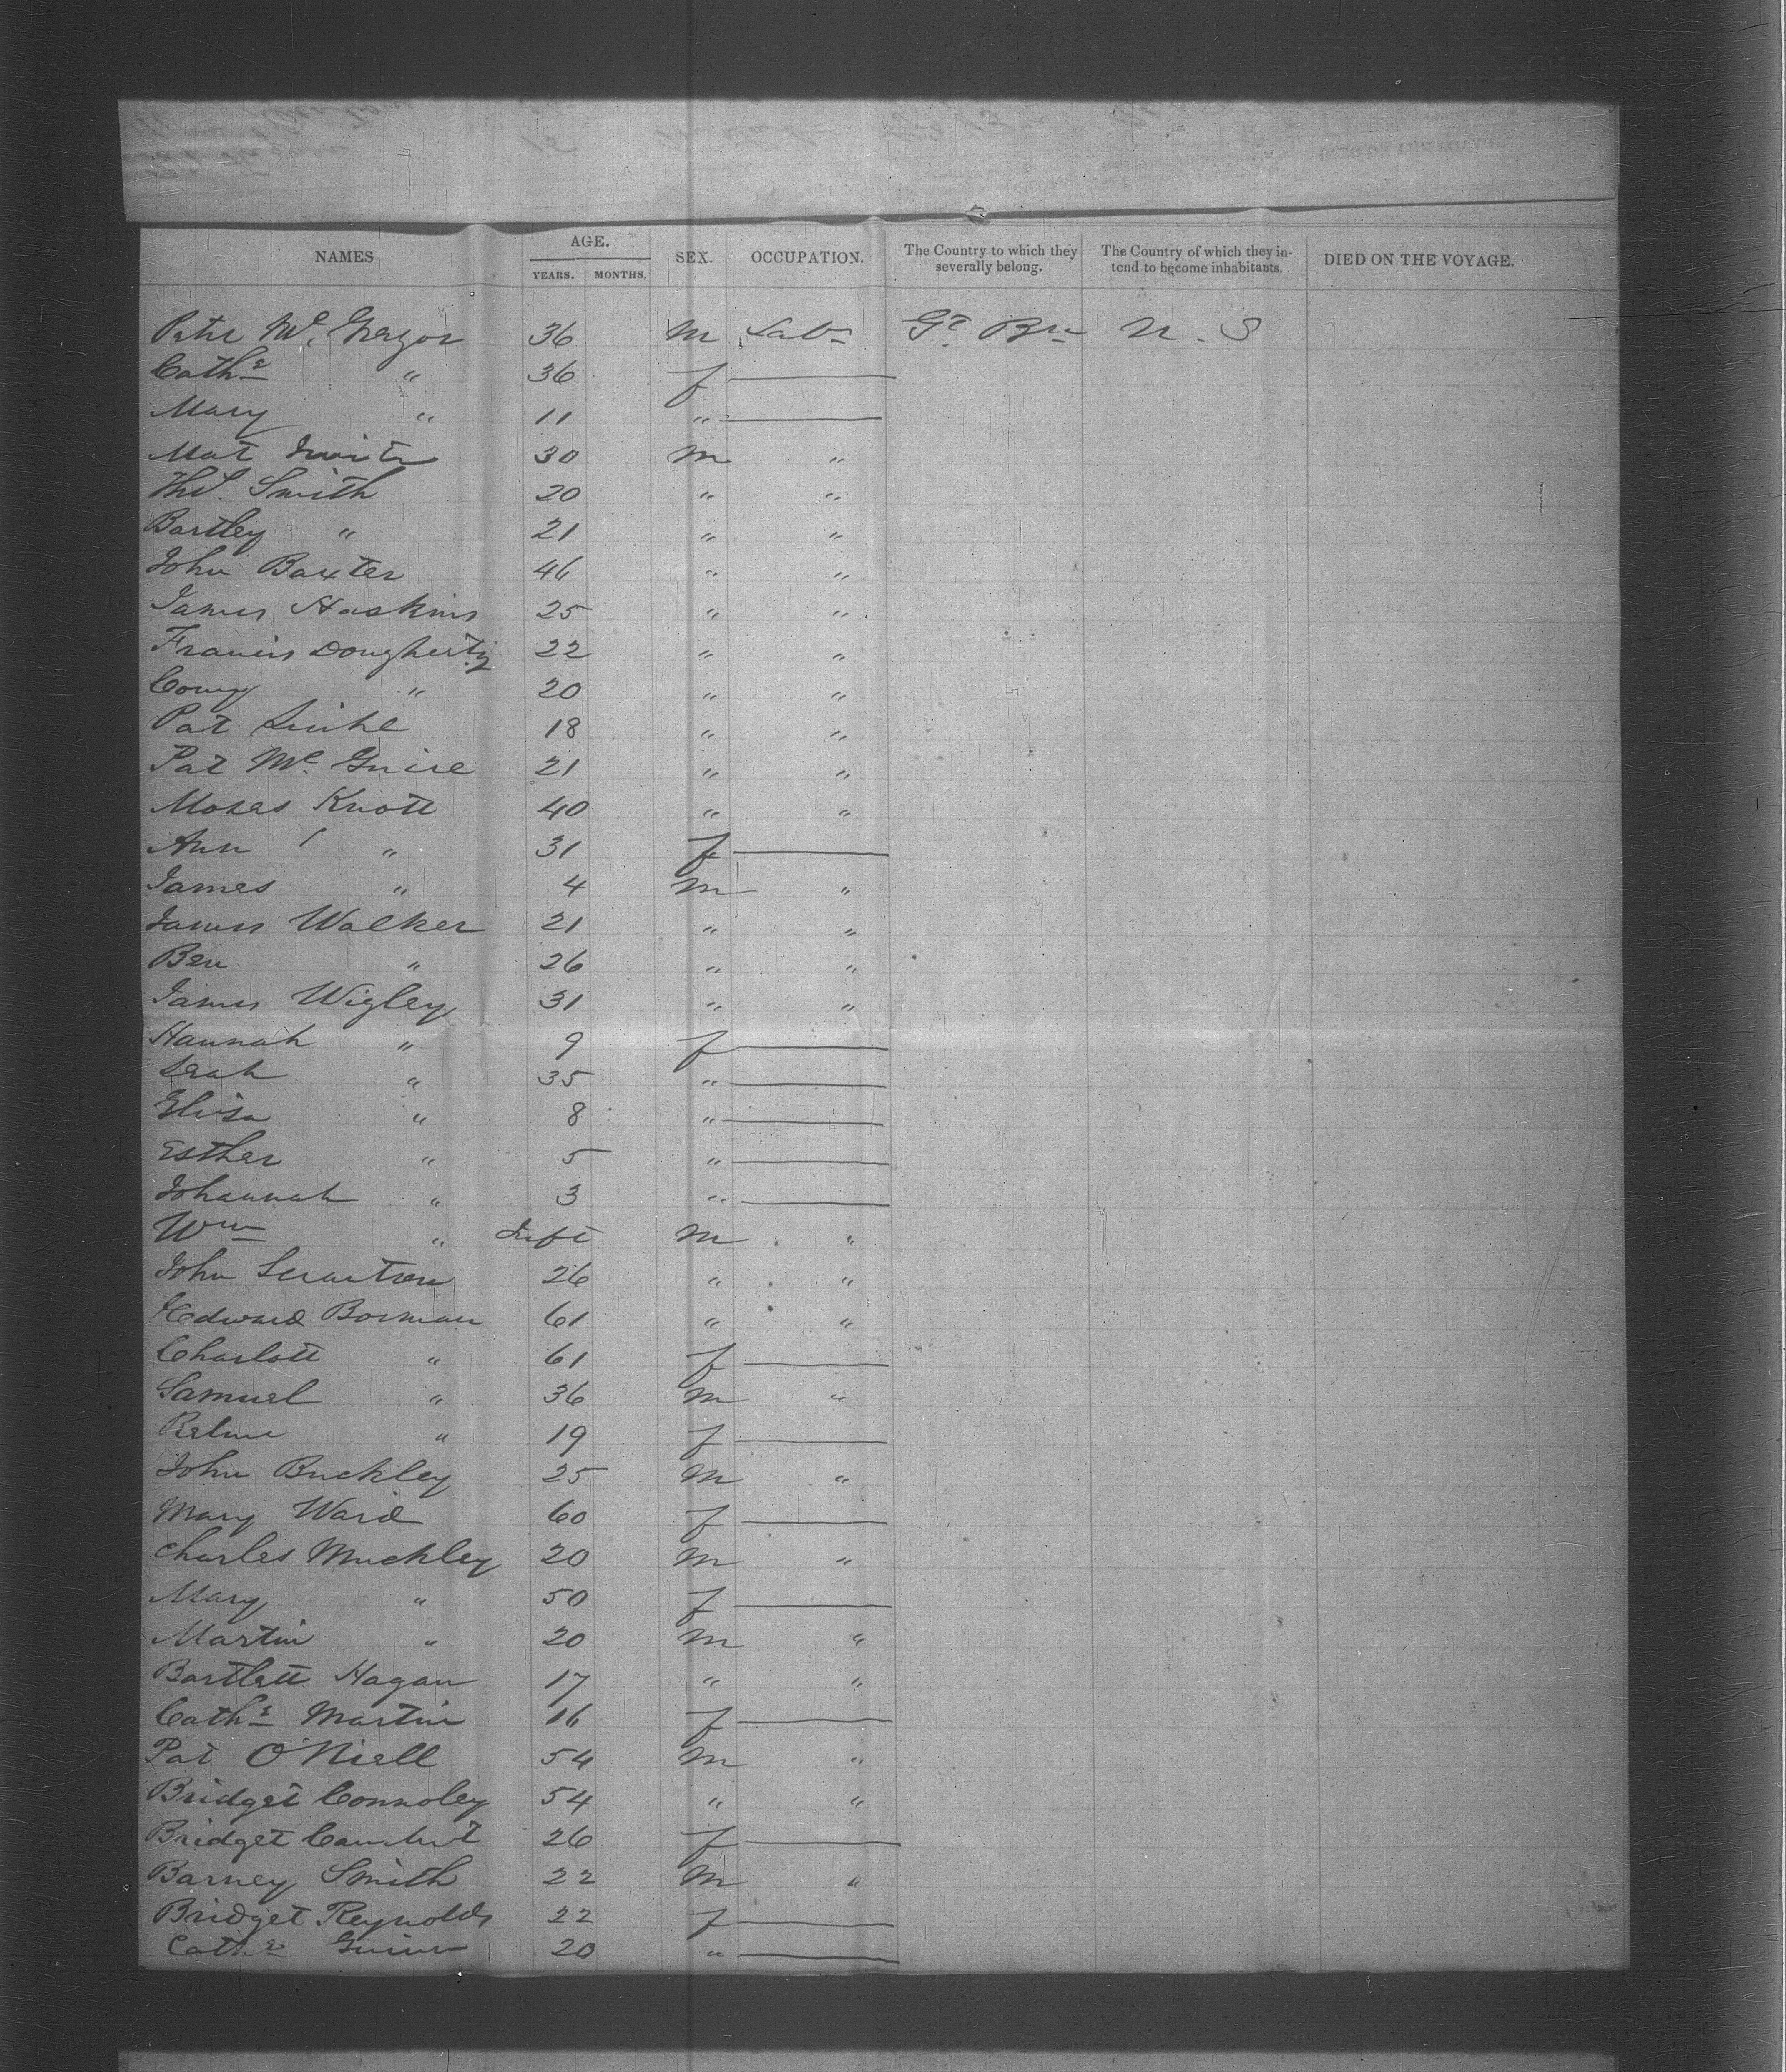 NAMES AGE. YEARS. MONTHS. SEX. OCCUPATION. The Country to which they severally belong. The Country of which they intend to become inhabitants. DIED ON THE VOYAGE.
Peter Mc Gregor 36 M Labr Gt Brn U. S
Cathe " 36 f
Mary " 11 "
Mat 30 M "
Thos. Smith 20 " "
Bartley " 21 " "
John Baxter 46 " "
James Haskins 25 " "
Francis Dougherty 22 " "
" 20 " "
Pat 18 " "
Pat Mc Guire 21 " "
Moses Knott 40 " "
Ann " 31 f
James " 4 M "
James Walker 21 " "
Ben " 26 " "
James Wigley 31 " "
Hannah " 9 f
Srah " 35 "
Eliza " 8 "
Esther " 5 "
Johannah " 3 "
Wm " Inft M "
John Scrantren 26 " "
Hedward Borman 61 " "
Charlott " 61 f
Samuel " 36 M "
" 19 f
John Buckley 25 M "
Mary Ward 60 f
Charles Muckley 20 M "
Mary " 50 f
Martin " 20 M "
Bartlett Hagan 17 " "
Cathe Martin 16 f
Pat O'Niell 54 M "
Bridget Connoley 54 " "
Bridget 26 f
Barney Smith 22 M "
Bridget Reynolds 22 f
Cathe 20 "